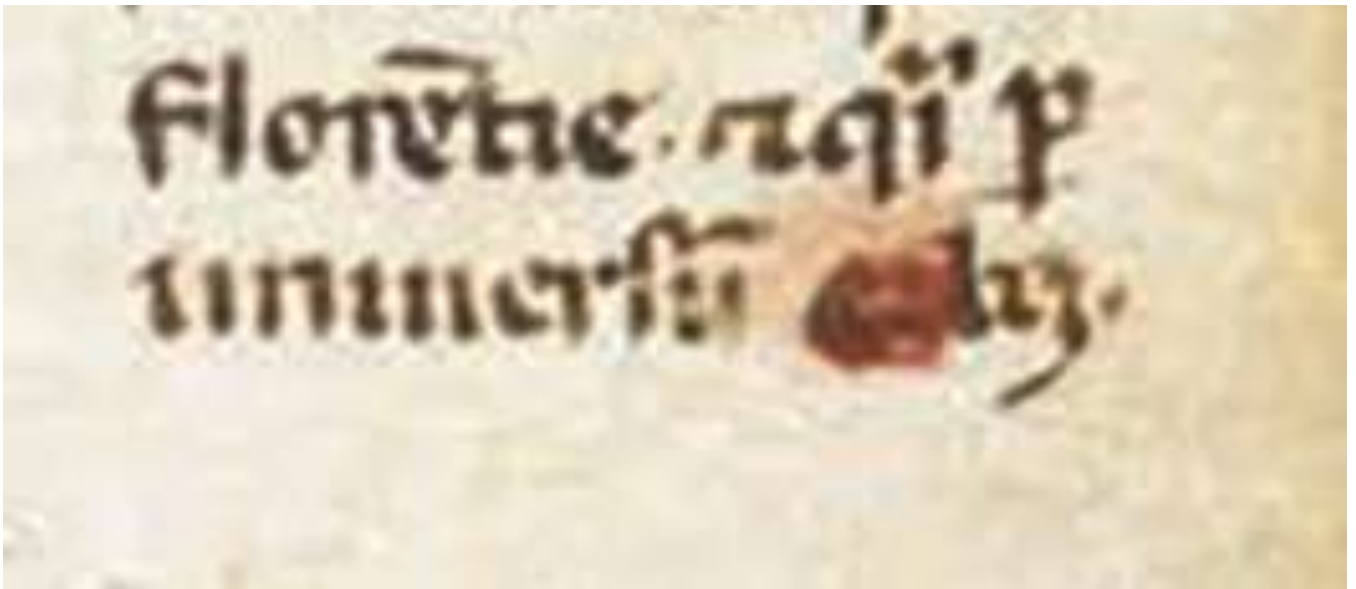 florētie . ⁊ qͥ ꝑ
uniuersū